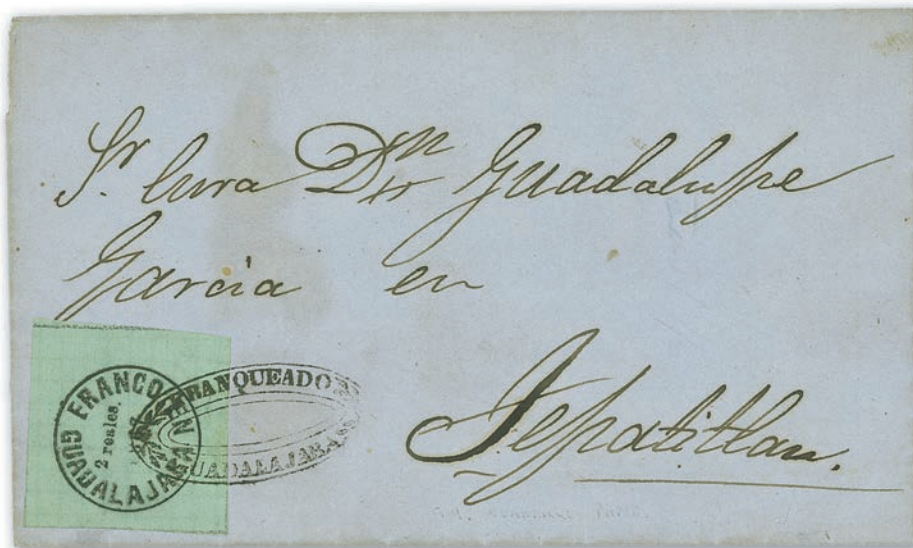 Sr. Cura Dn Guadalupe
García en
Tepatitlan.
FRANCO EN
2 reales.
GUADALAJARA
FRANQUEADO
GUADALAJARA